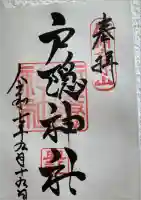 奉拝
戸隠神社
令和 年九月十九日